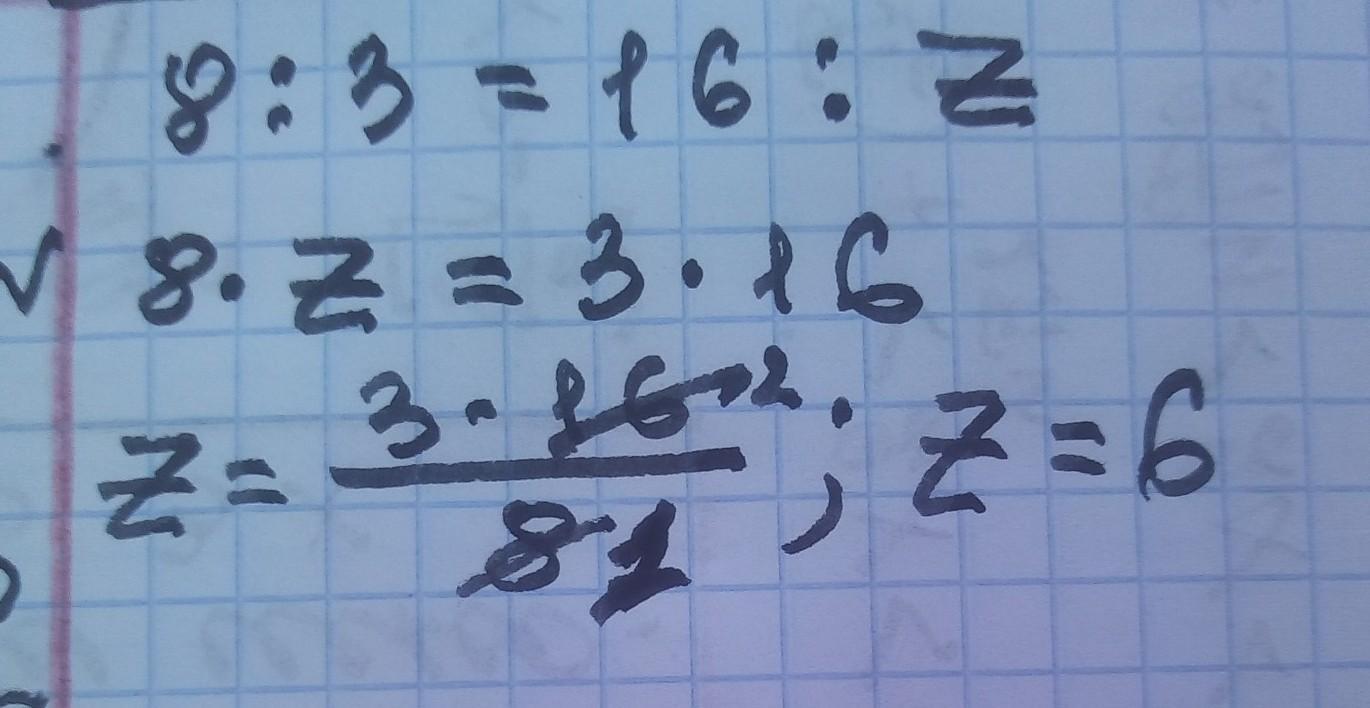 8 : 3 = 16 : z
8 · z = 3 · 16
z = 3 · 16 2 / 8 1 ; z = 6